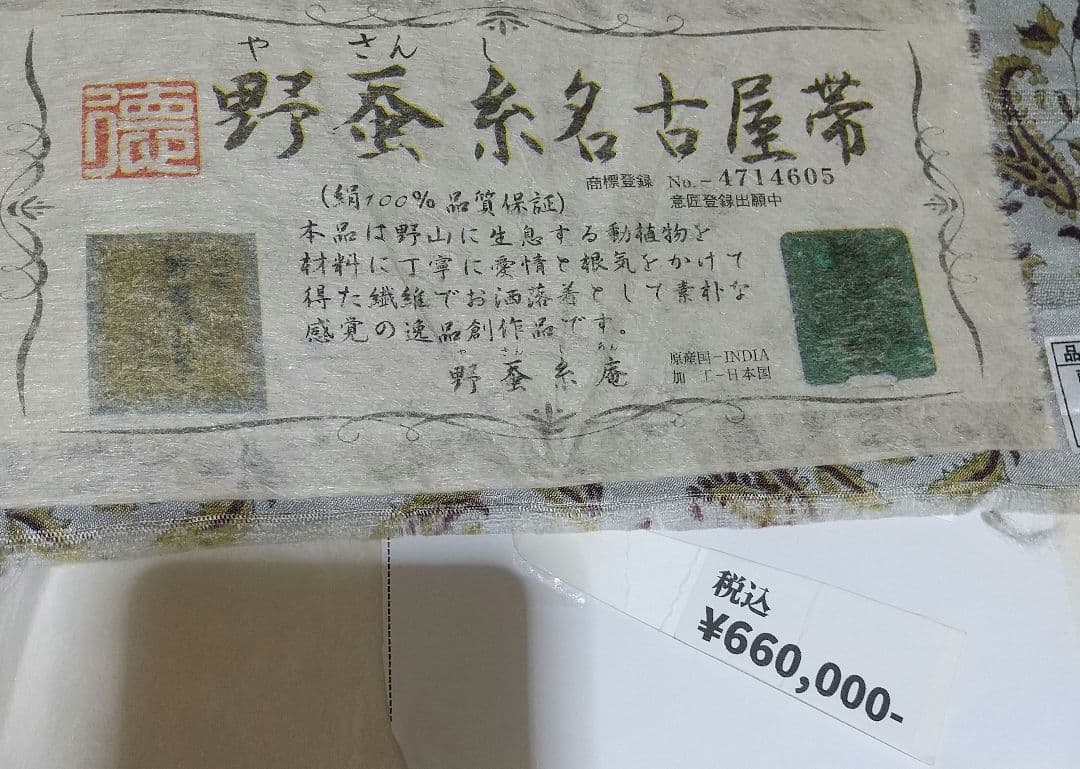 や さん し
野蚕糸名古屋帯
徳
商標登録 No.-4714605
意匠登録出願中
(絹100%品質保証)
本品は野山に生息する動植物を
材料に丁寧に愛情と根気をかけて
得た繊維でお洒落着として素朴な
感覚の逸品創作品です。
や さん し あん
野蚕糸庵
原産国-INDIA
加 工-日本国
品
税込
¥660,000-